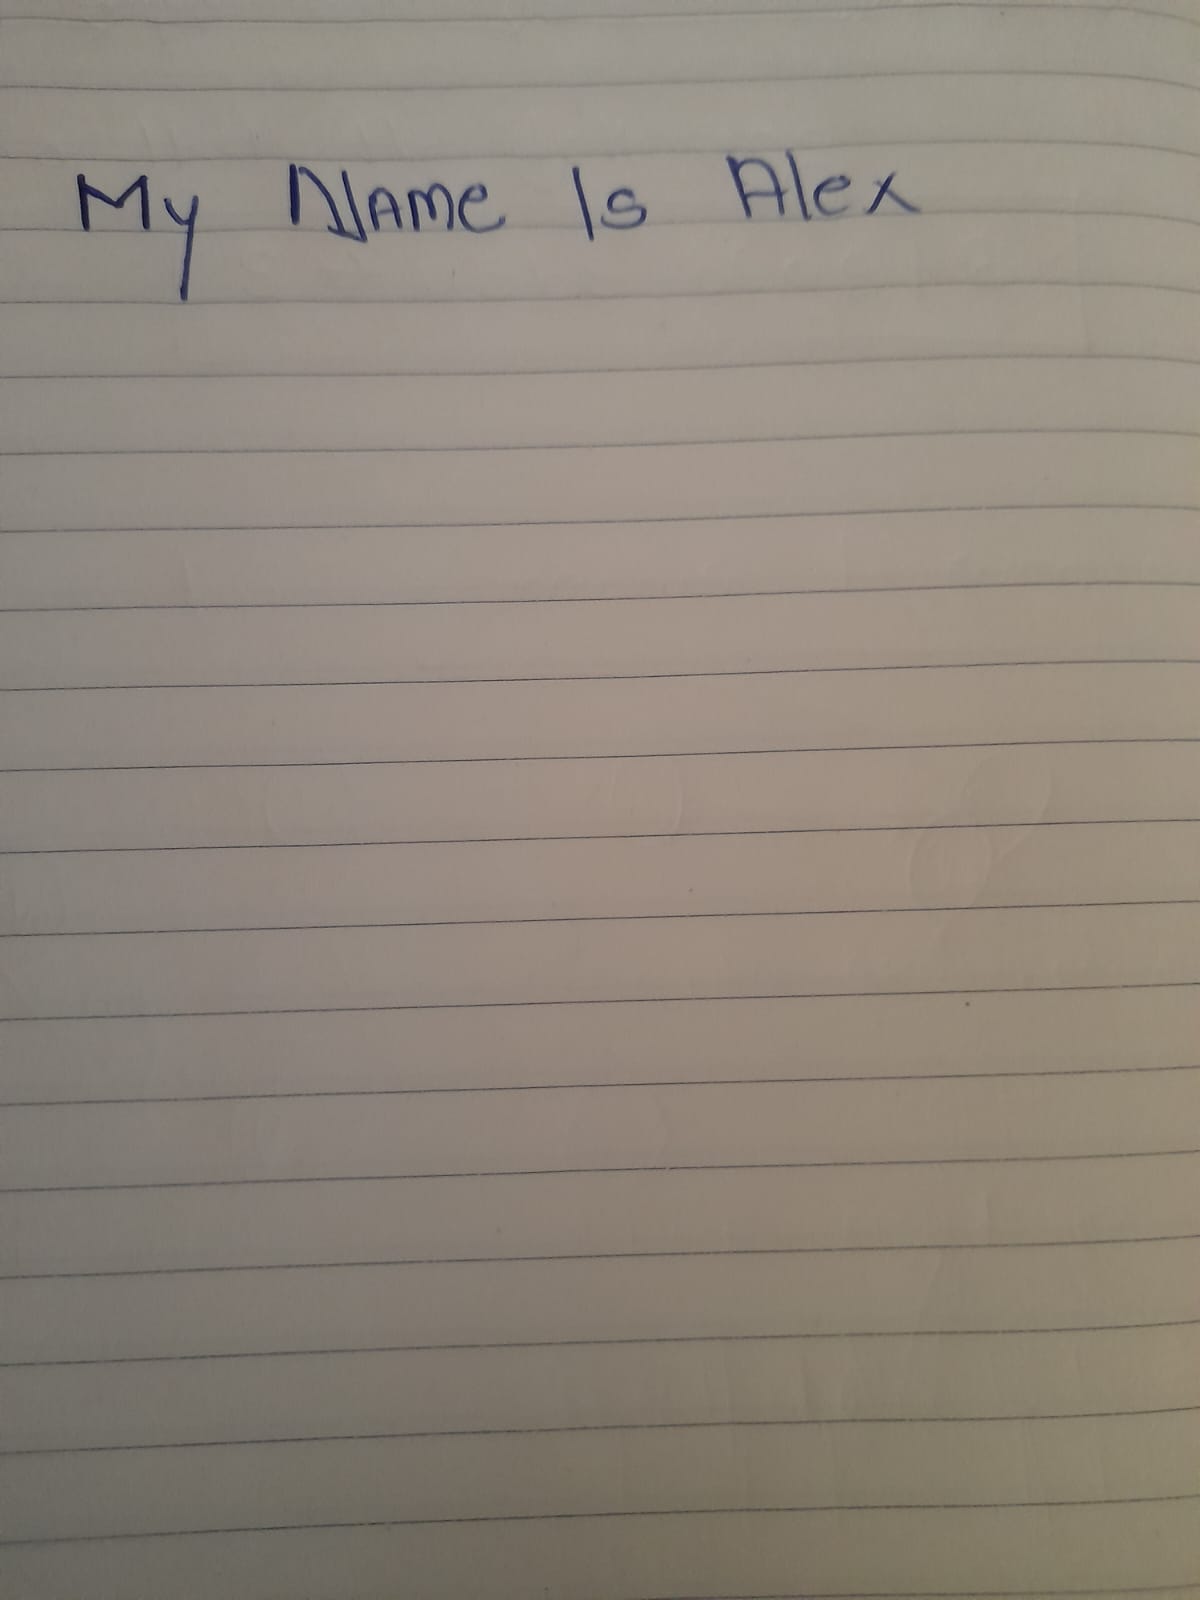 My Name Is Alex